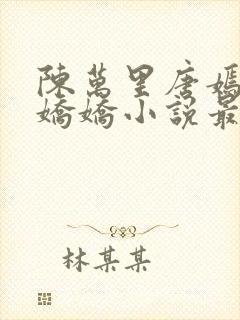 陳萬里唐嫣
嬌嬌小說最
林某某